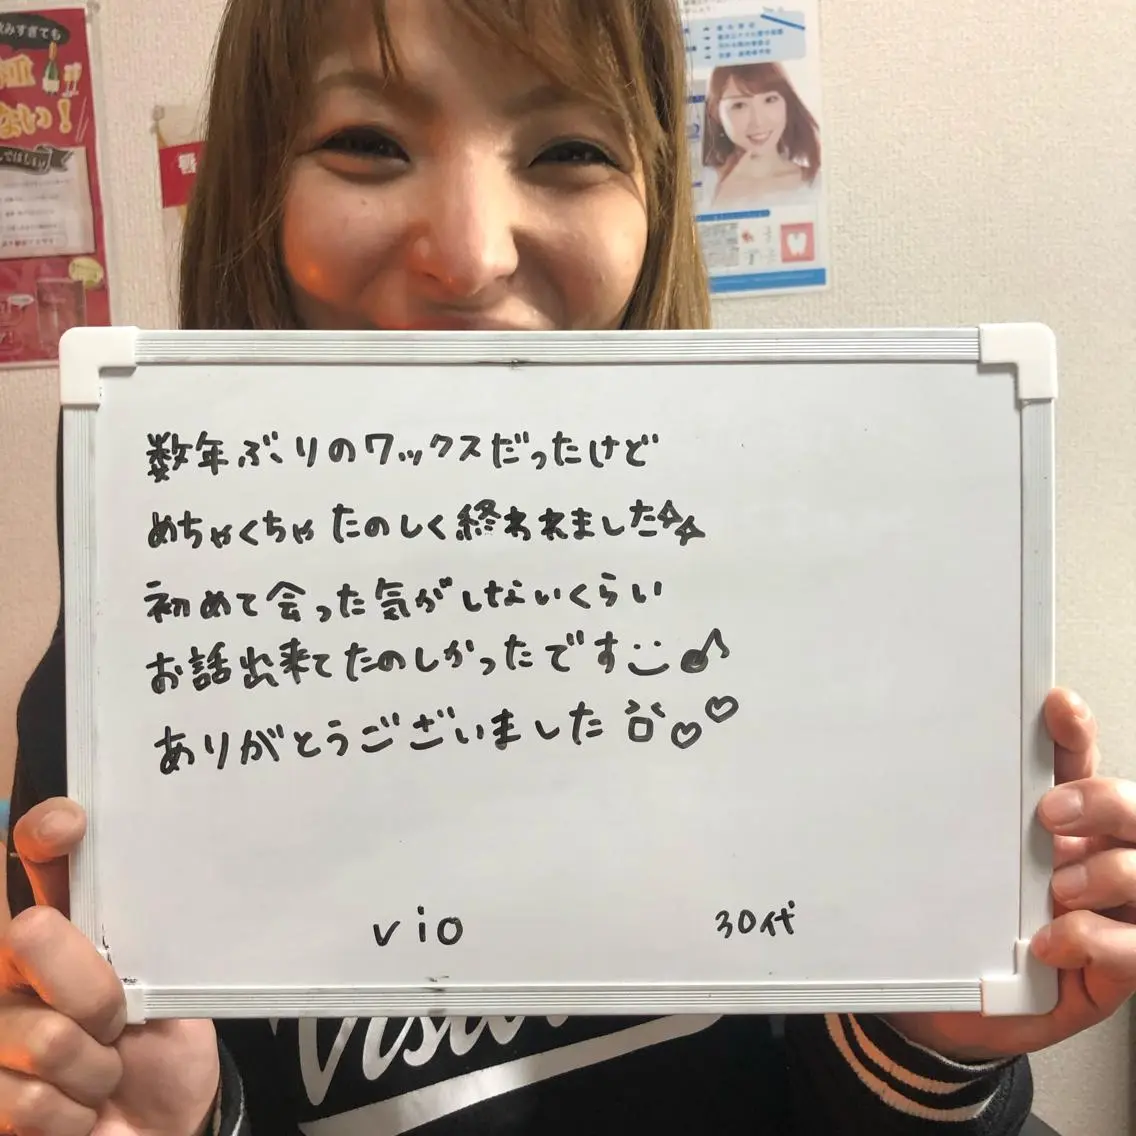 数年ぶりのワックスだったけど
めちゃくちゃたのしく終われました☆☆
初めて会った気がしないくらい
お話出来てたのしかったです♪
ありがとうございました♡♡
vio
30代
飲みすぎても
ない！